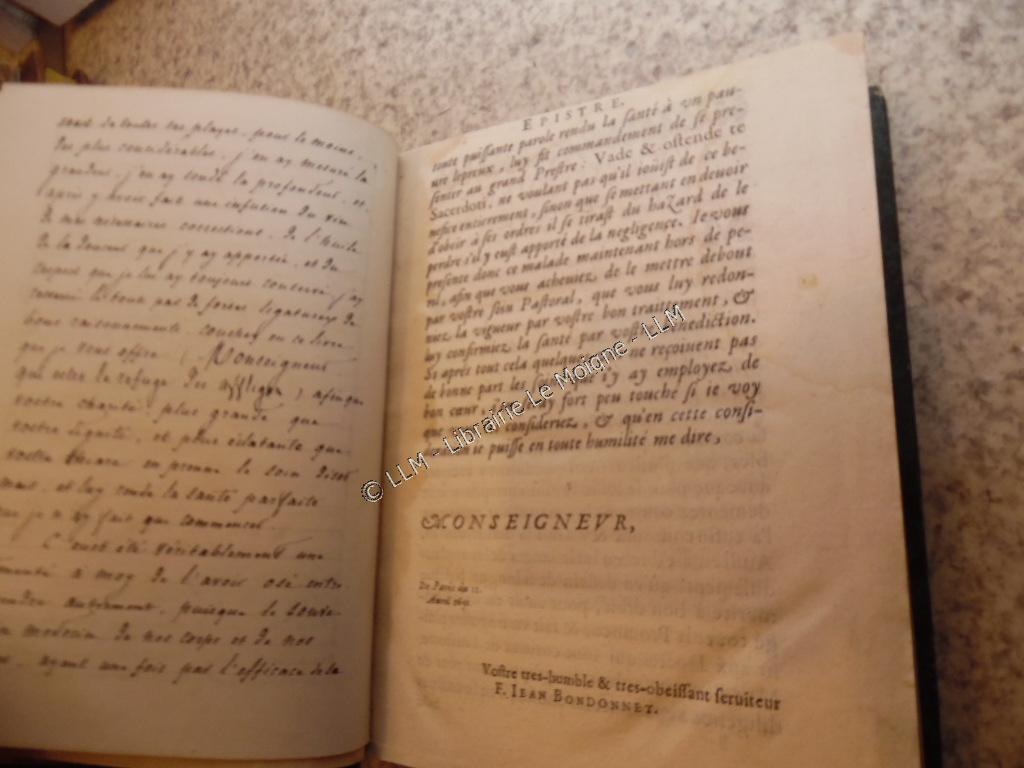 sont de toutes ses playes, pour le moins
des plus considérables. j'en ay mesuré la
grandeur, j'en ay sondé la profondeur, et
après y avoir fait une infusion du vin
de mes necessaires corrections, de l'huile
de la douceur que j'y ay apportée, et du
respect que je luy ay toujours conservé, j'ay
couvert le tout par de fortes ligatures de
bons raisonnements couchez en ce livre
que je vous offre. Monseigneur
qui estes le refuge des affligez, afin que
vostre charité plus grande que
vostre dignité, et plus éclatante que
vostre en prenne le soin
mais, et luy rende la santé parfaite
que je n'ay fait que commencer.
C'eust été véritablement une
à moy de l'avoir osé entre
autrement, puisque le souve
médecin de nos corps et de nos
ayant une fois par l'efficace de la
EPISTRE.
toute puissante parole rendu la santé à vn pau-
ure lepreux, luy fit commandement de se pre-
senter au grand Prestre: Vade & ostende te
Sacerdoti, ne voulant pas qu'il ioüist de ce be-
nefice entierement, sinon que se mettant en deuoir
d'obeir à ses ordres il se tirast du hazard de le
perdre s'il y eust apporté de la negligence. Ie vous
presente donc ce malade maintenant hors de pe-
ril, afin que vous acheuiez de le mettre debout
par vostre soin Pastoral, que vous luy redon-
niez la vigueur par vostre bon traittement, &
luy confirmiez la santé par vostre benediction.
Si apres tout cela quelques ne reçoiuent pas
de bonne part les i'y ay employez de
bon cœur, fort peu touché si ie voy
que consideriez, & qu'en cette consi-
ie puisse en toute humilité me dire,
MONSEIGNEVR,
De Paris du 12.
Auril 1651.
Vostre tres-humble & tres-obeissant seruiteur
F. IEAN BONDONNET.
© LLM - Librairie Le Moigne - LLM